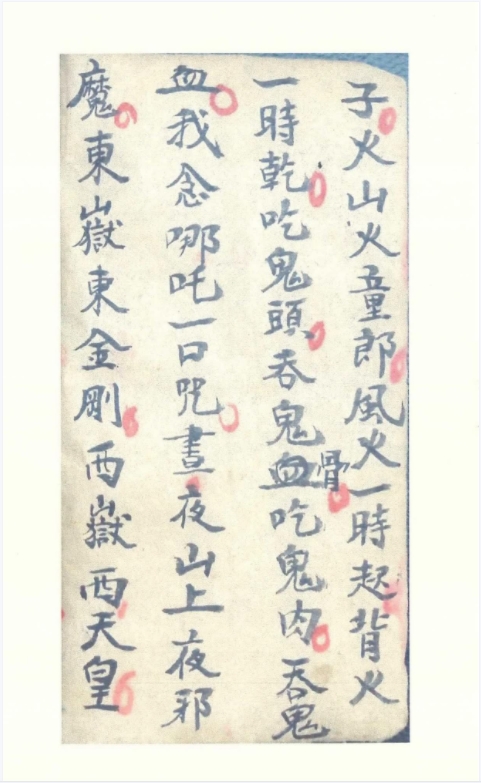 子火山火童郎風火一時起背火
一時乾吃鬼頭吞鬼血骨吃鬼肉吞鬼
血我念哪吒一口咒晝夜山上夜邪
魔東嶽東金剛西嶽西天皇